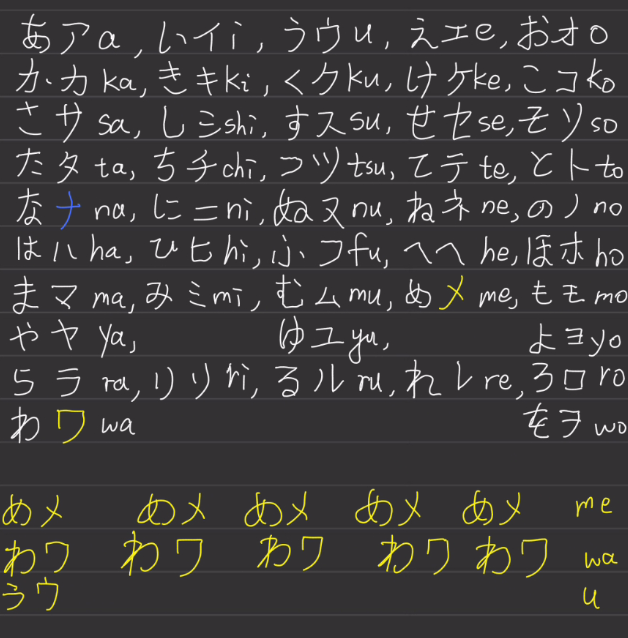 あアa, いイi, うウu, えエe, おオo
かカka, きキki, くクku, けケke, こコko
さサsa, しシshi, すスsu, せセse, そソso
たタta, ちチchi, つツtsu, てテte, とトto
なナna, にニni, ぬヌnu, ねネne, のノno
はハha, ひヒhi, ふフfu, へヘhe, ほホho
まマma, みミmi, むムmu, めメme, もモmo
やヤya, ゆユyu, よヨyo
らラra, りリri, るルru, れレre, ろロro
わワwa をヲwo
めメ めメ めメ めメ めメ me
わワ わワ わワ わワ わワ wa
うウ u